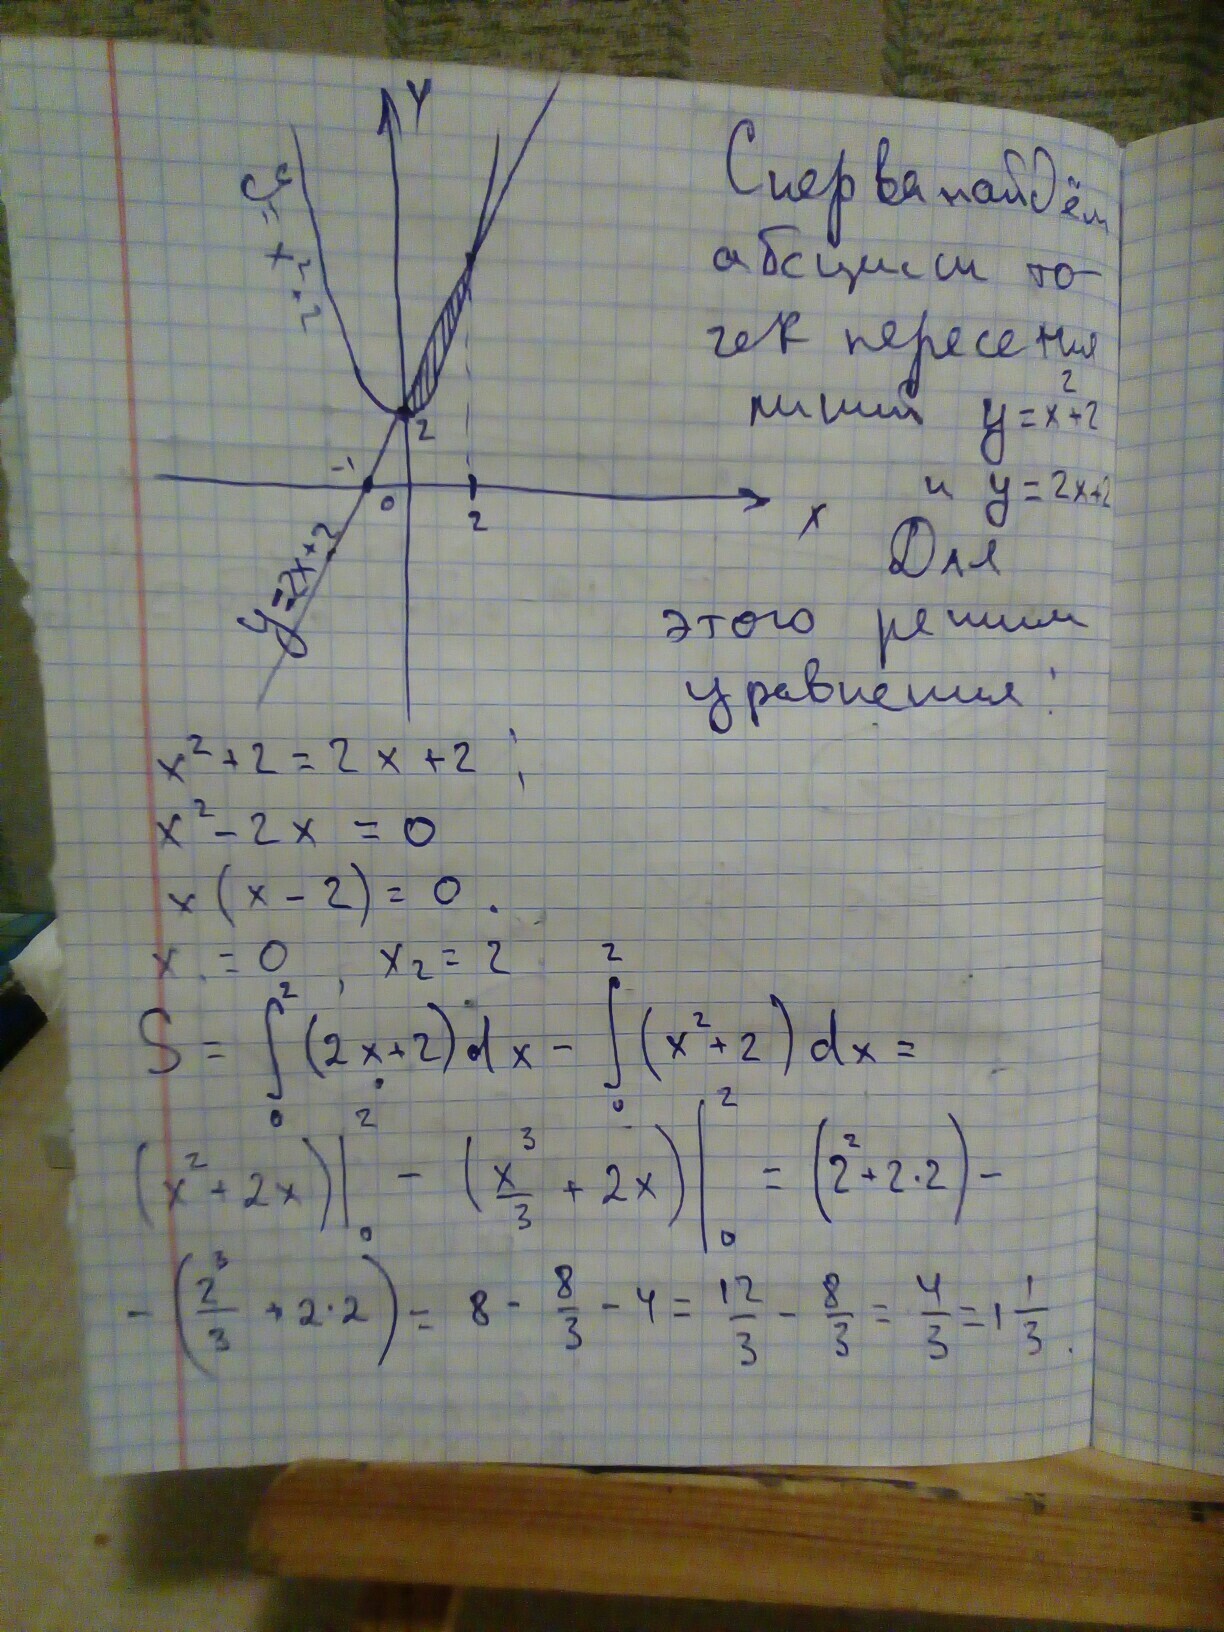 Y
y = x² + 2
2
-1
0
2
x
y = 2x + 2
Сперва найдём
абсциссы то-
чек пересения
линий y = x² + 2
и y = 2x+2
Для
этого решим
уравнения:
x² + 2 = 2x + 2;
x² - 2x = 0
x(x - 2) = 0.
x₁ = 0, x₂ = 2
S = ∫₀² (2x+2)dx - ∫₀² (x²+2)dx =
(x² + 2x)|₀² - (x³/3 + 2x)|₀² = (2² + 2·2) -
- (2³/3 + 2·2) = 8 - 8/3 - 4 = 12/3 - 8/3 = 4/3 = 1 1/3.